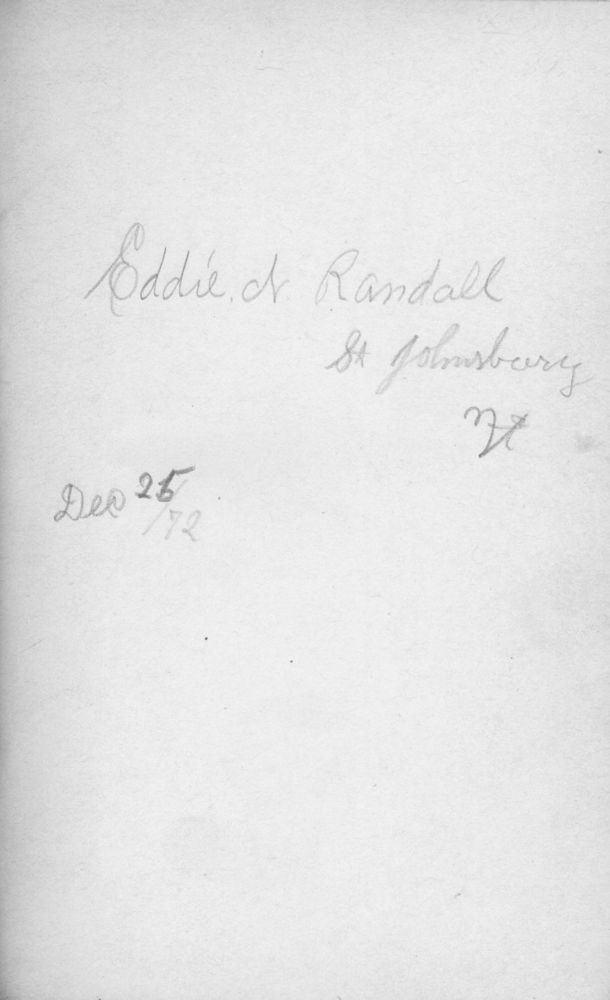 Eddie. N. Randall
St Johnsbury
Vt
Dec 25/72